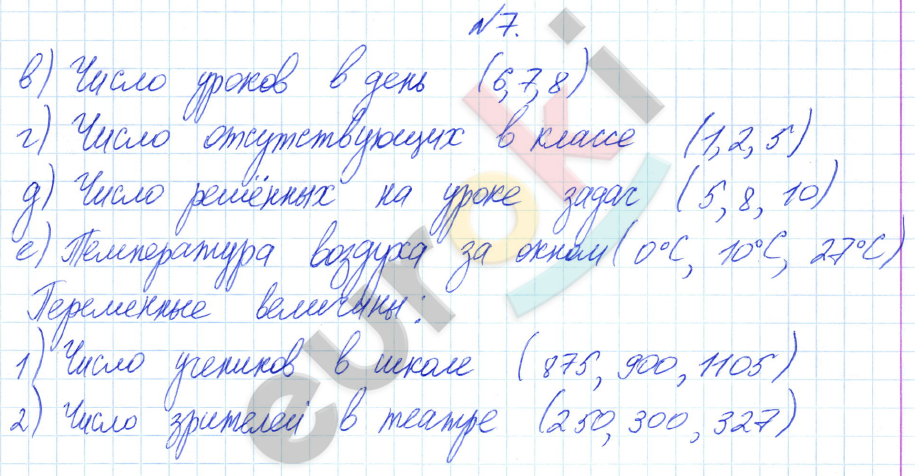 №7.
в) Число уроков в день (6,7,8)
г) Число отсутствующих в классе (1,2,5)
д) Число решённых на уроке задач (5,8,10)
е) Температура воздуха за окном (0°С, 10°С, 27°С)
Переменные величины:
1) Число учеников в школе (875, 900, 1105)
2) Число зрителей в театре (250, 300, 327)
euroki